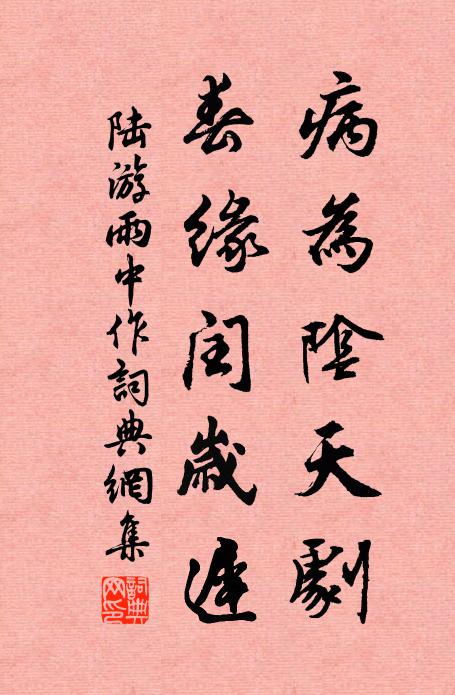 病為陰天劇
春緣閏歲遲
陸游雨中作詞典網集
詞典網印